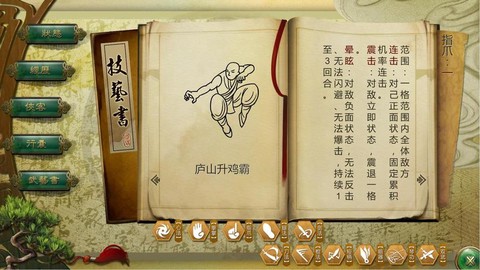 狀態
俠客
行囊
武藝書
技藝書
庐山升鸡霸
指爪：一
范围：一格范围内全体敌方
连击：对己正面状态，固定累积
机率连击。
震击：对敌立即状态，震退一格
晕眩：对敌负面状态，无法反击
、无法闪避、无法爆击，持续1
至3回合。